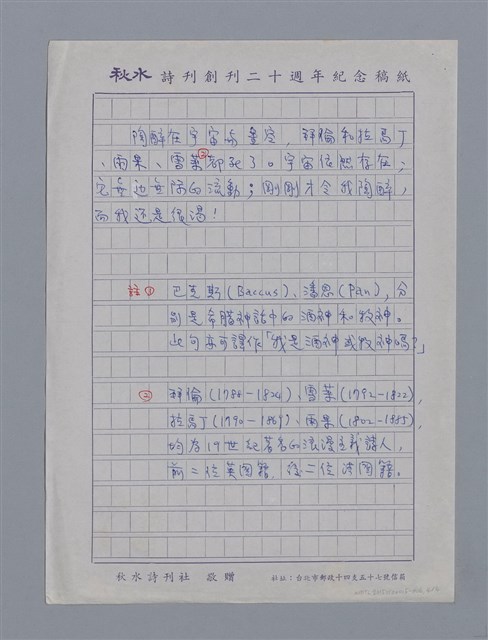 秋水 詩刊創刊二十週年紀念稿紙
陶醉在宇宙與星空,拜倫和拉馬丁
、雨果、雪萊②都死了。宇宙依然存在;
它每逝每隔的流動;剛剛才令我陶醉,
而我還是很渴!
註① 巴克斯(Baccus)、潘恩(Pan),分
別是希腊神話中的酒神和牧神。
此句亦可譯作「我是酒神或牧神嗎?」
② 拜倫(1788-1824)、雪萊(1792-1822),
拉馬丁(1790-1869)、雨果(1802-1885),
均為19世紀著名的浪漫主義詩人,
前二位英國籍,後二位法國籍。
秋水詩刊社 敬贈
社址:台北市郵政十四支五十七號信箱